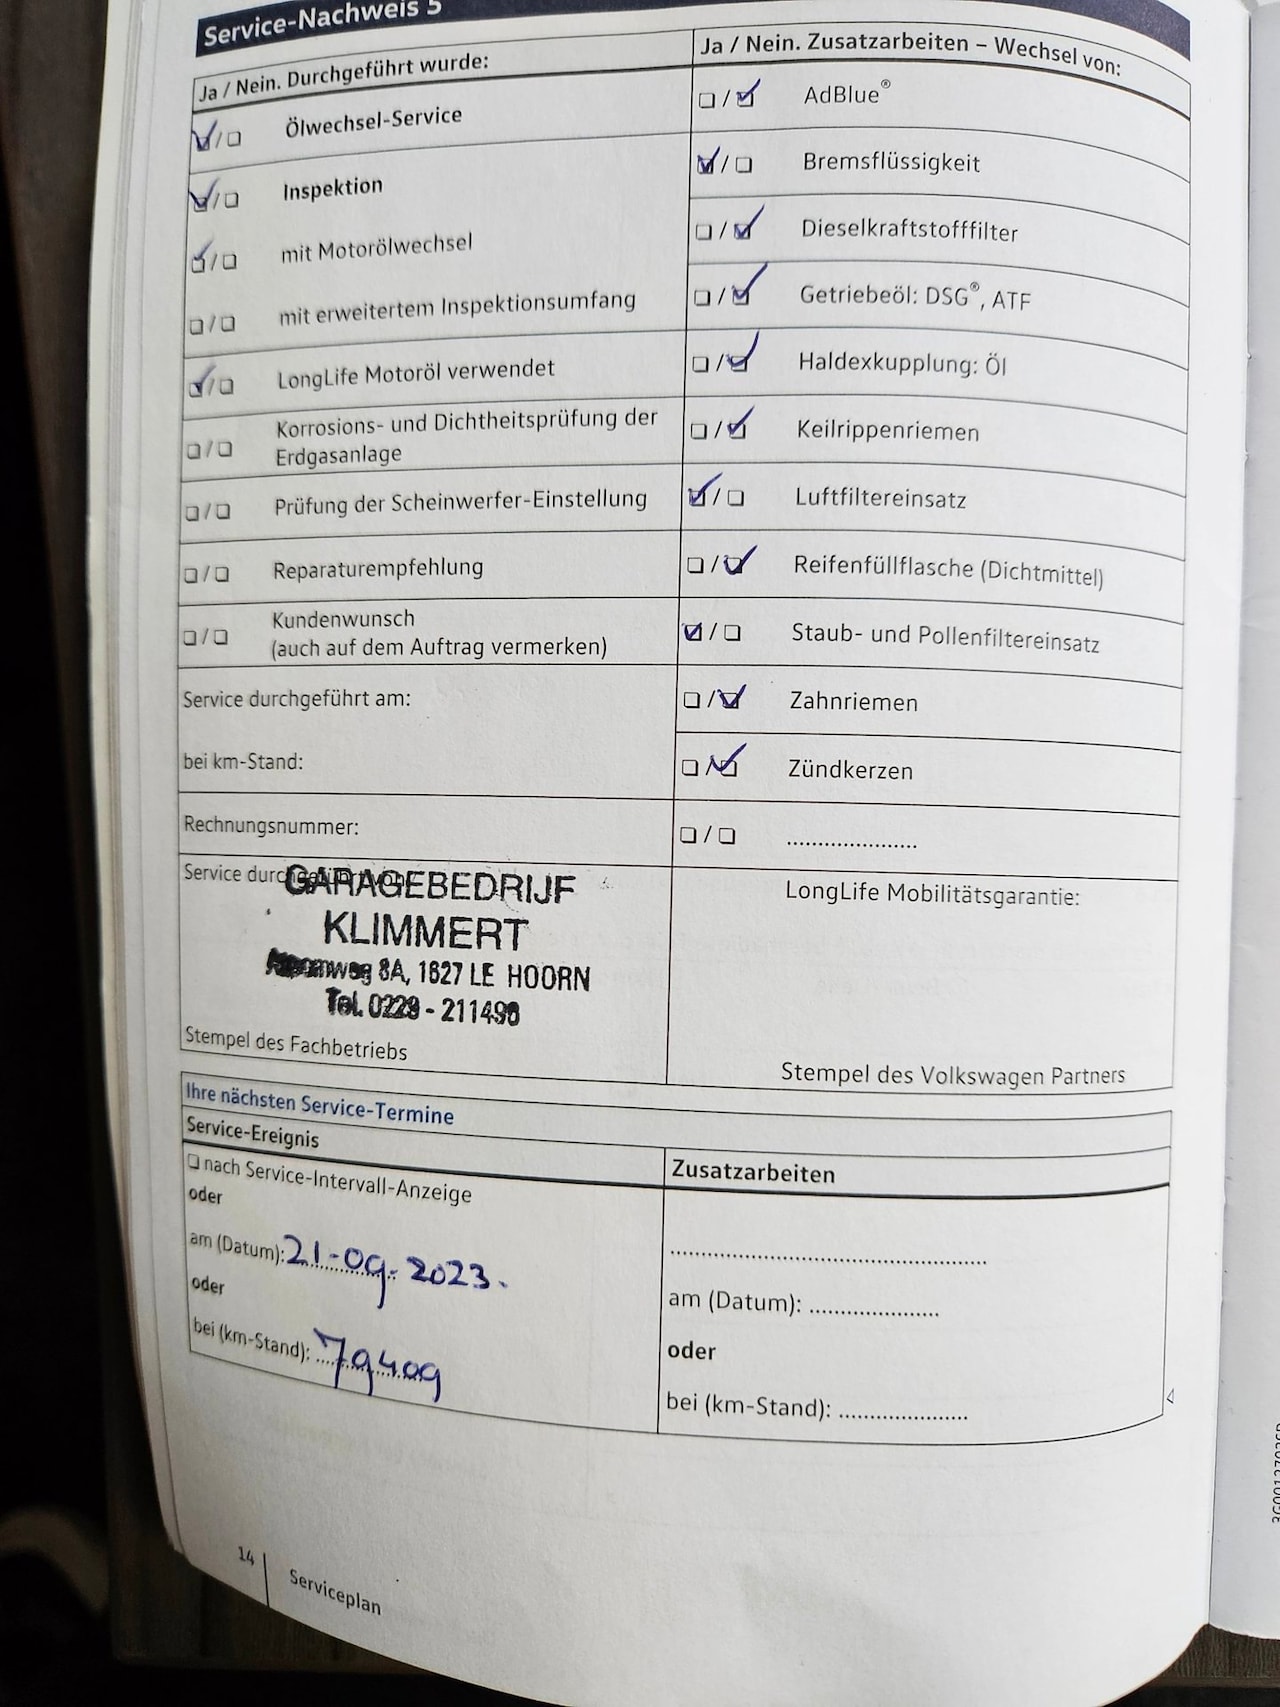 Service-Nachweis 5
Ja / Nein. Durchgeführt wurde:
Ölwechsel-Service
Inspektion
mit Motorölwechsel
mit erweitertem Inspektionsumfang
LongLife Motoröl verwendet
Korrosions- und Dichtheitsprüfung der
Erdgasanlage
Prüfung der Scheinwerfer-Einstellung
Reparaturempfehlung
Kundenwunsch
(auch auf dem Auftrag vermerken)
Service durchgeführt am:
bei km-Stand:
Rechnungsnummer:
Service durchgeführt von:
GARAGEBEDRIJF
KLIMMERT
8A, 1627 LE HOORN
Tel. 0229 - 211498
Stempel des Fachbetriebs
Ja / Nein. Zusatzarbeiten – Wechsel von:
AdBlue®
Bremsflüssigkeit
Dieselkraftstofffilter
Getriebeöl: DSG®, ATF
Haldexkupplung: Öl
Keilrippenriemen
Luftfiltereinsatz
Reifenfüllflasche (Dichtmittel)
Staub- und Pollenfiltereinsatz
Zahnriemen
Zündkerzen
LongLife Mobilitätsgarantie:
Stempel des Volkswagen Partners
Ihre nächsten Service-Termine
Service-Ereignis
nach Service-Intervall-Anzeige
oder
am (Datum): 21-09-2023.
oder
bei (km-Stand): 79409
Zusatzarbeiten
am (Datum):
oder
bei (km-Stand):
14
Serviceplan